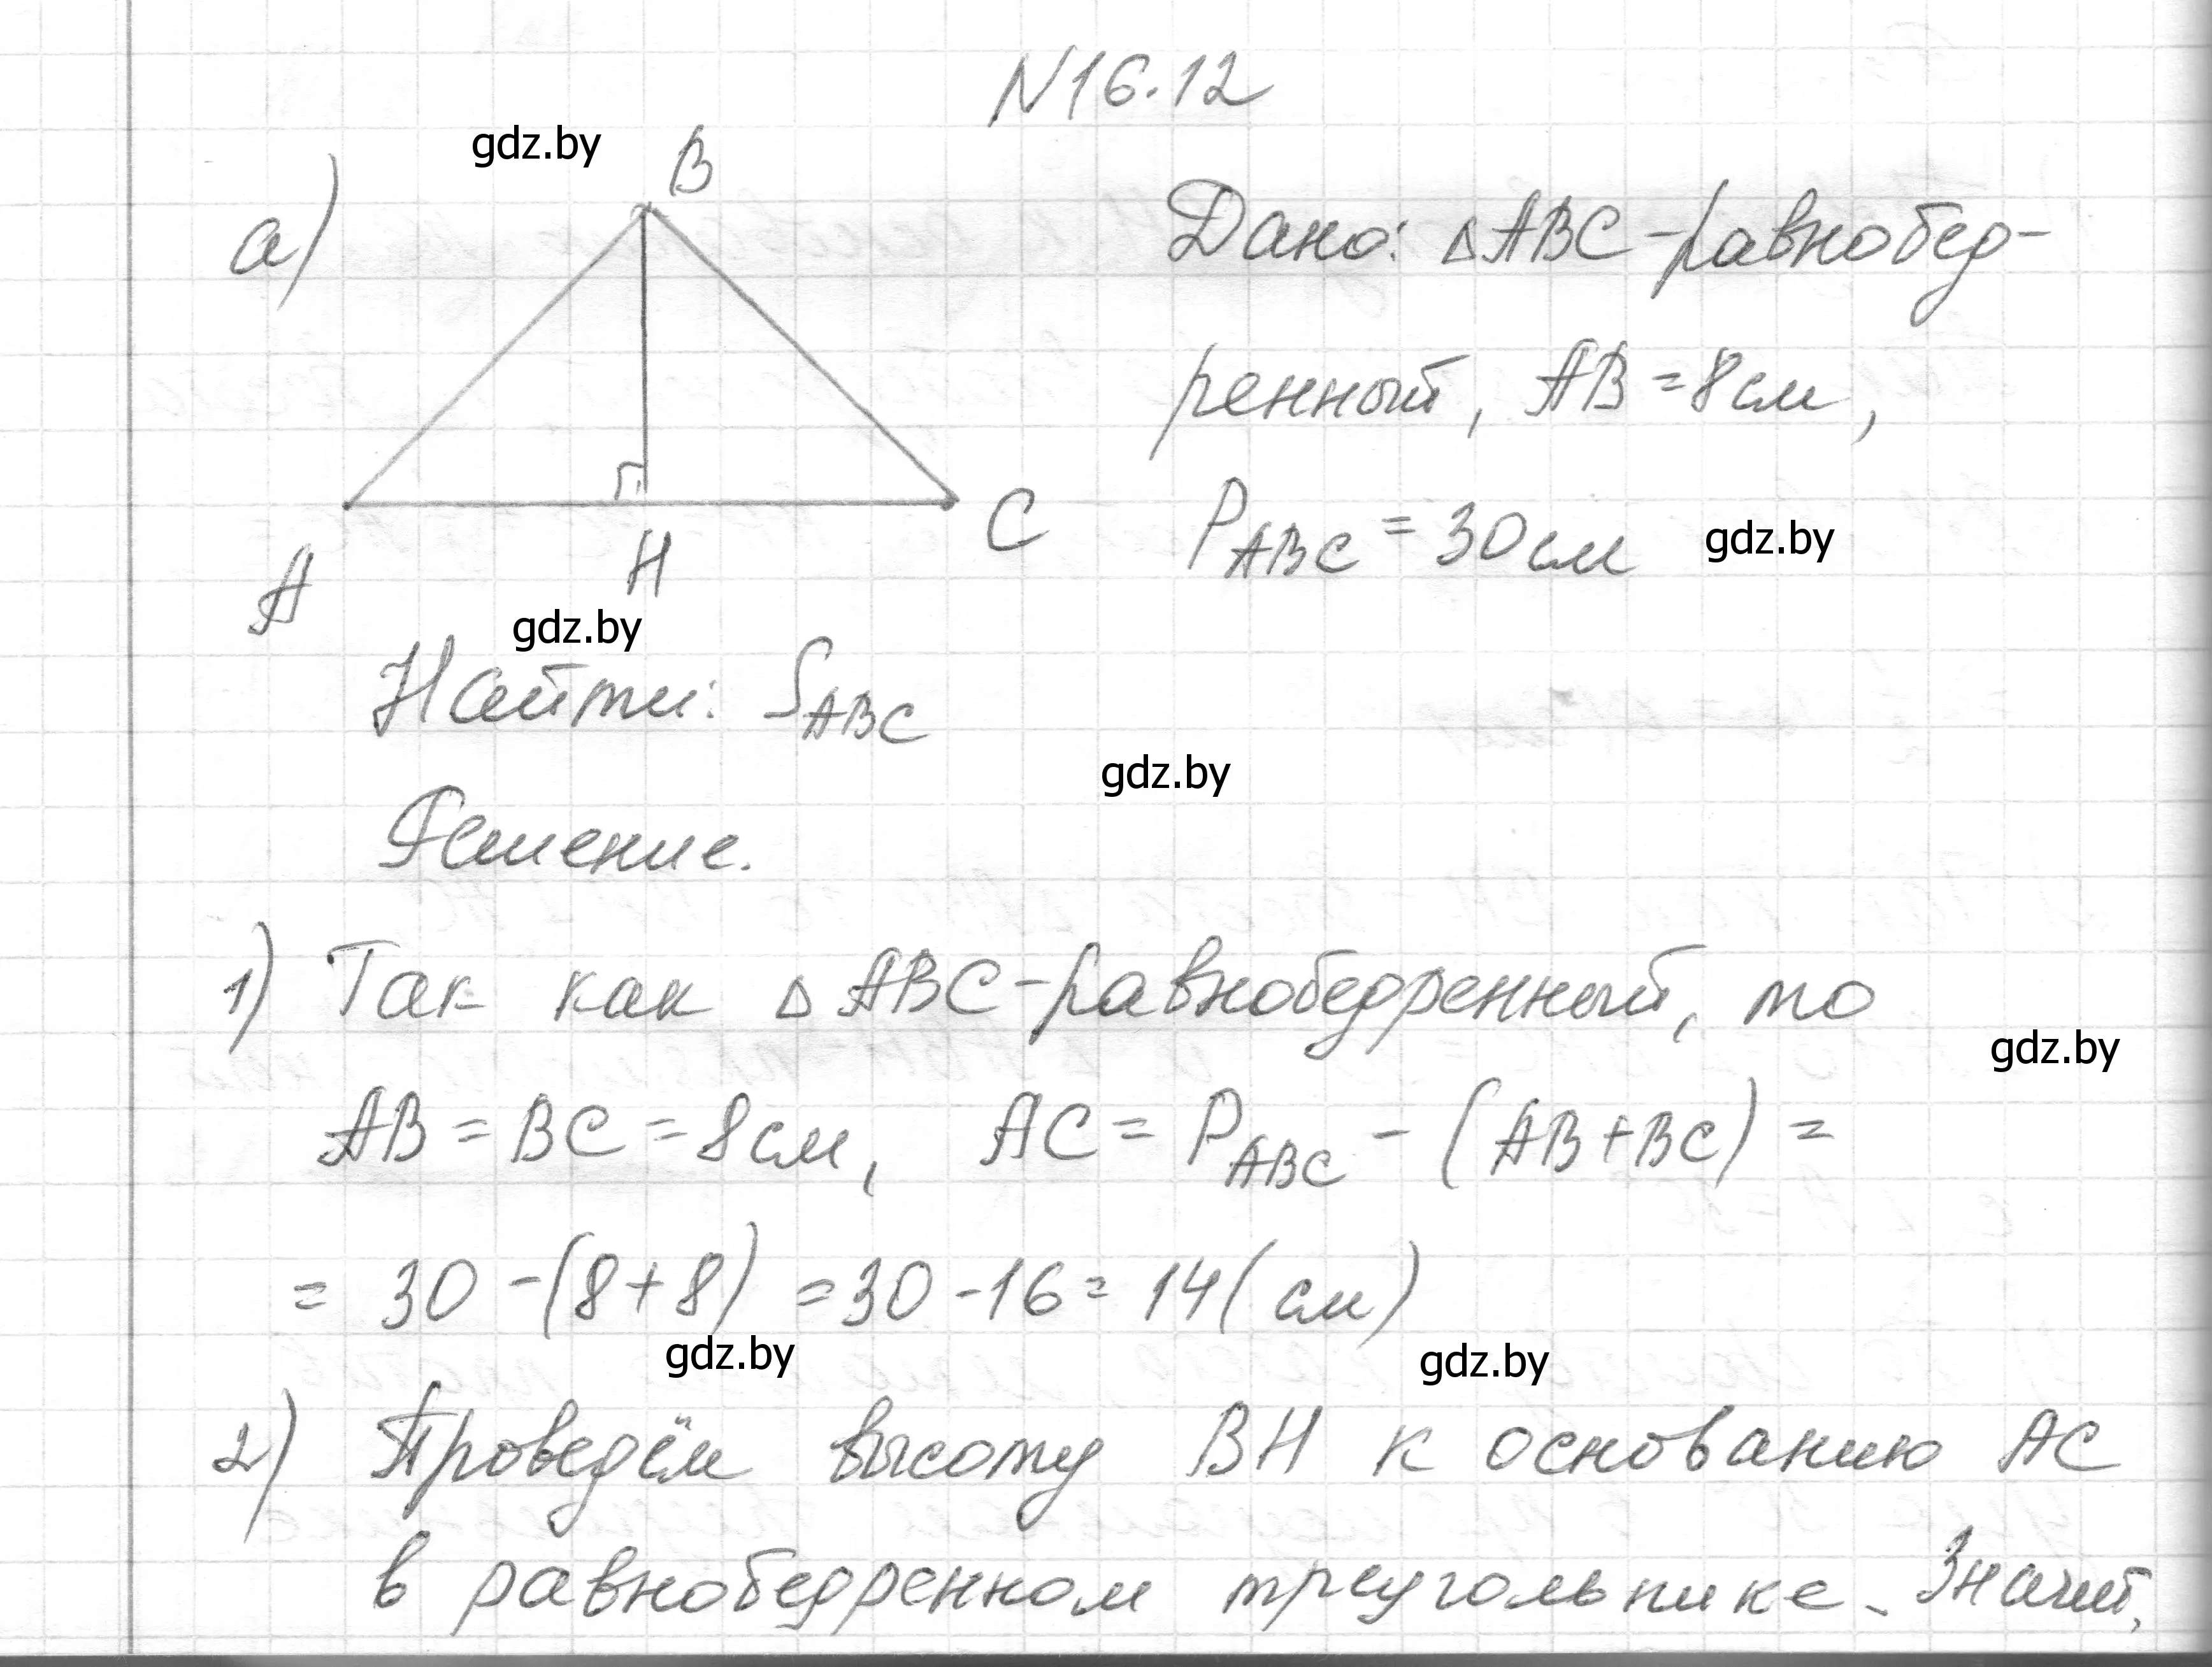 N16.12
gdz.by
а)
B
A
H
C
Дано: △ABC-равнобед-
ренный, AB = 8см,
P_ABC = 30см
gdz.by
gdz.by
Найти: S_ABC
gdz.by
Решение.
1) Так как △ABC-равнобедренный, то
gdz.by
AB = BC = 8см, AC = P_ABC - (AB+BC) =
= 30 -(8+8) = 30 -16 = 14( см)
gdz.by
gdz.by
2) Проведём высоту BH к основанию AC
в равнобедренном треугольнике. Значит,